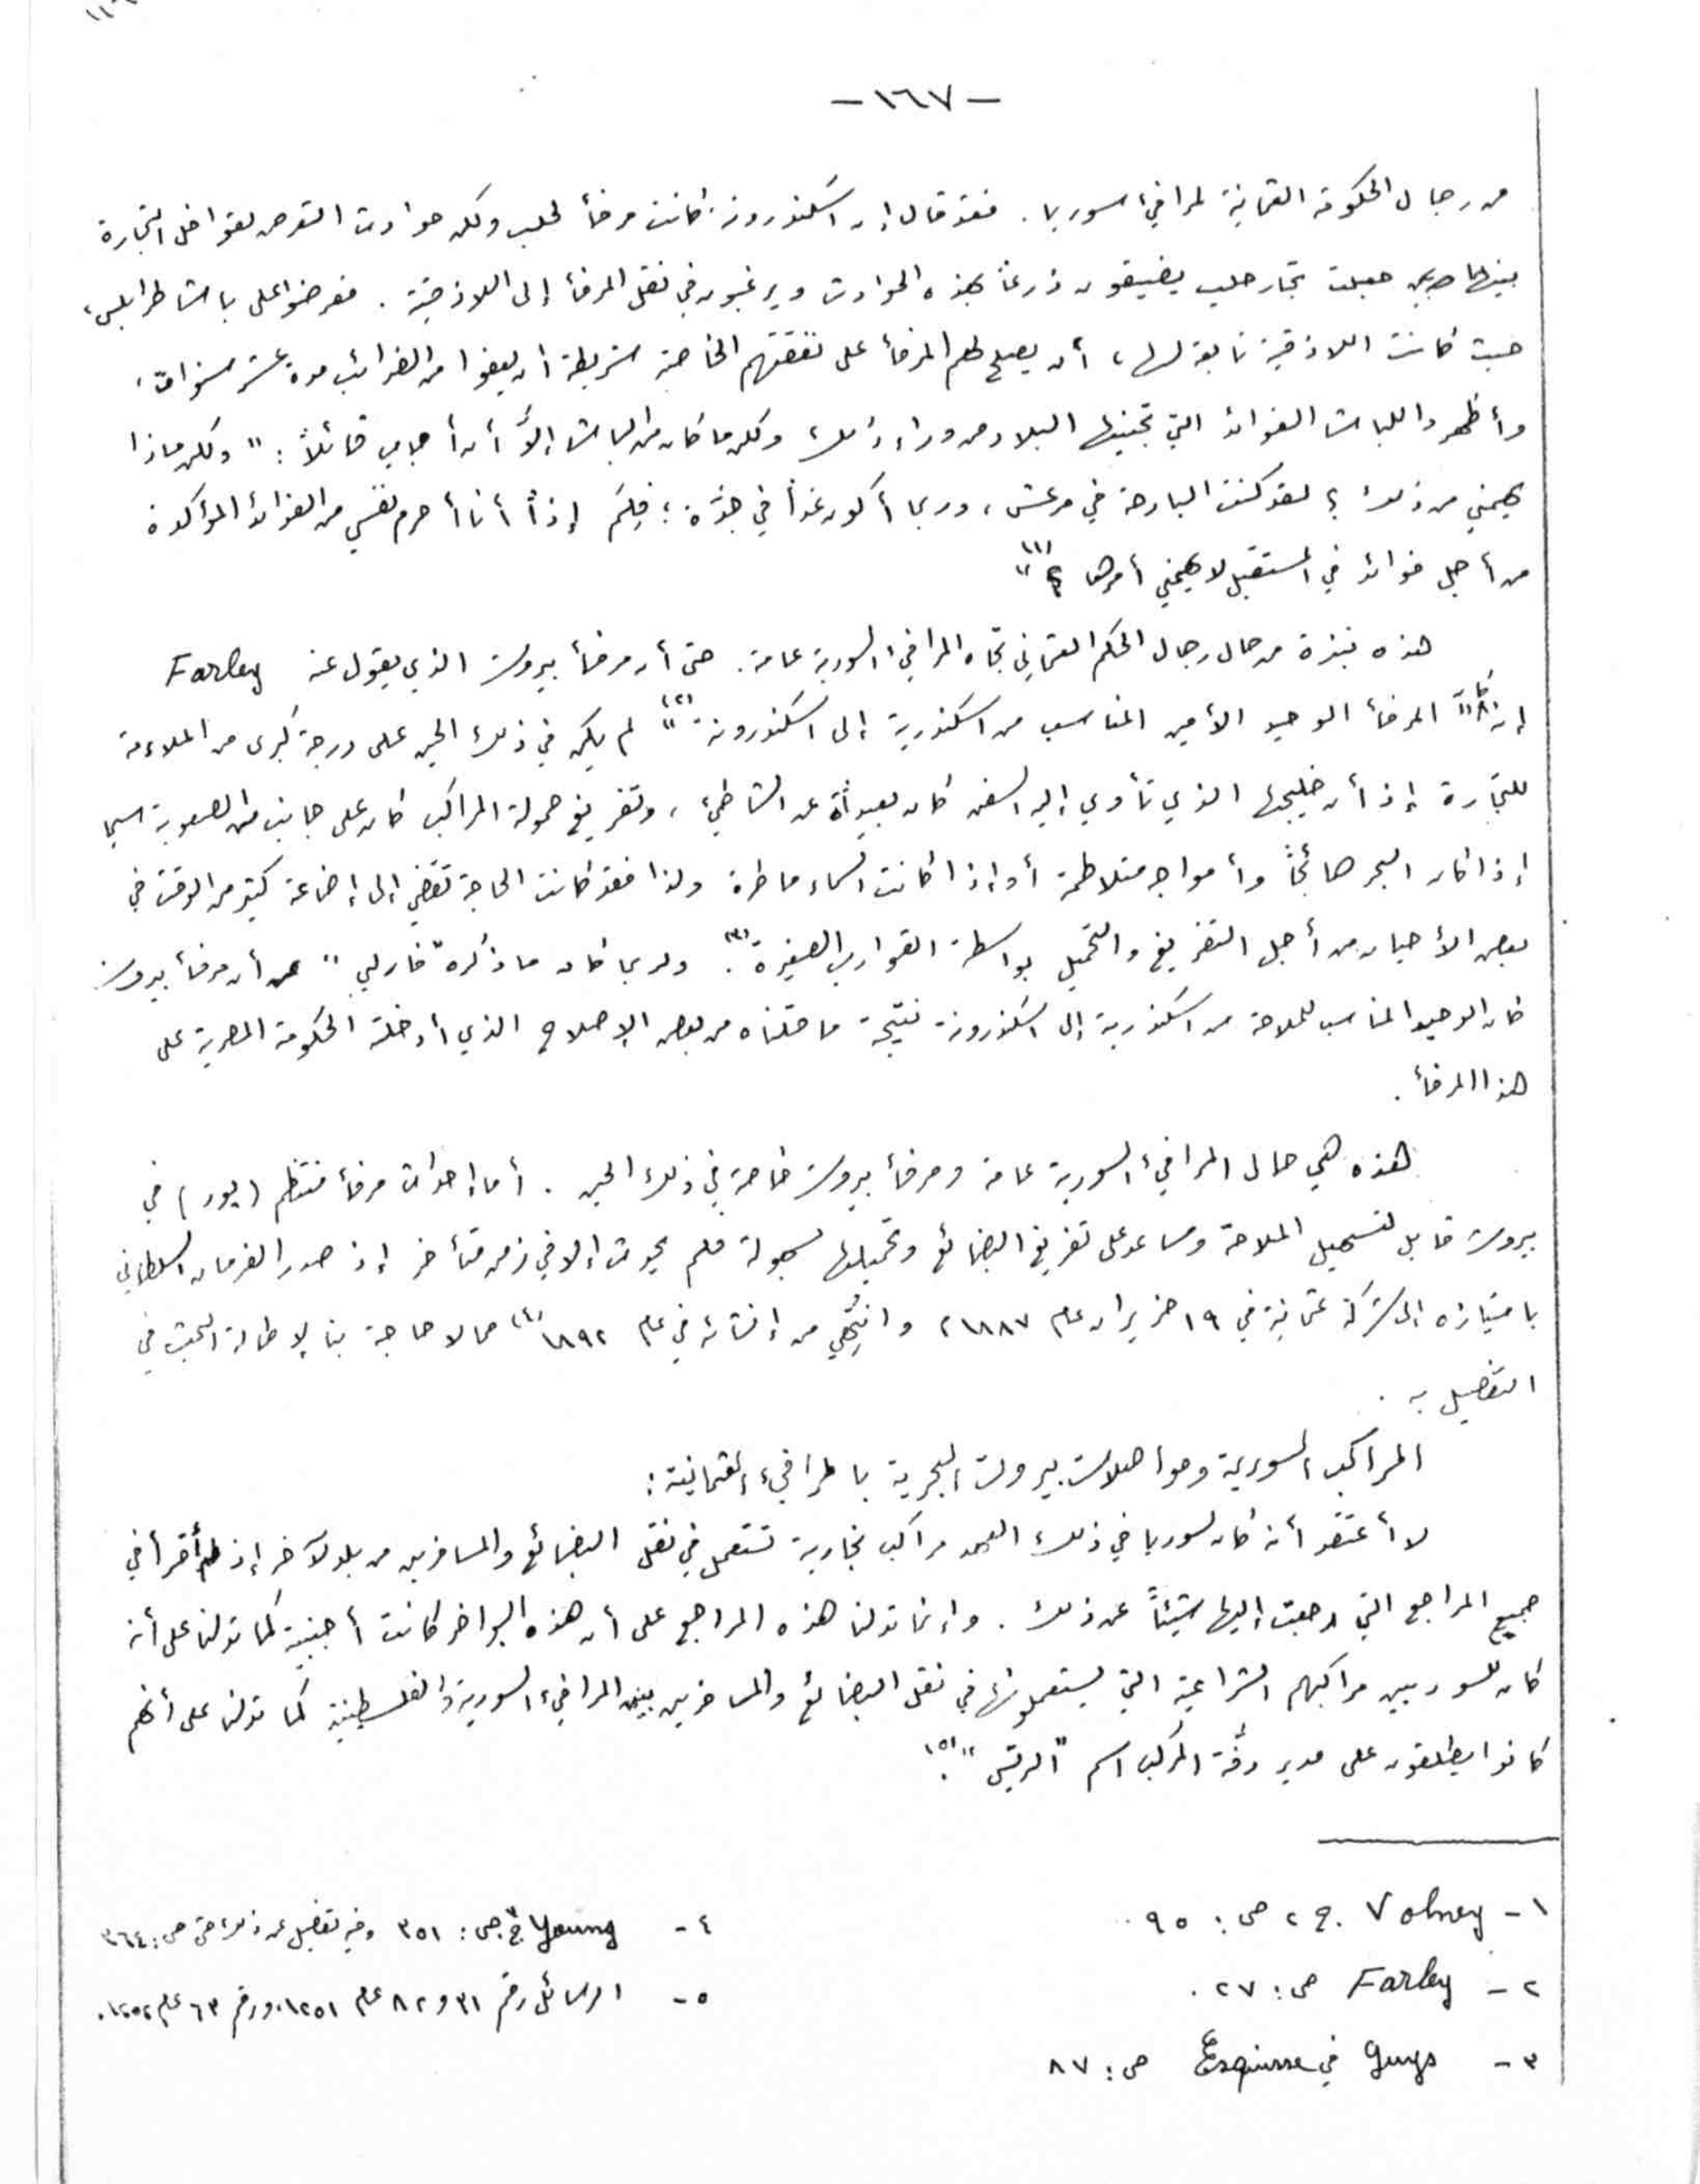 -١٦٧-
من رجال الحكومة العثمانية لمرافئ سوريا . فقد قال إن اسكندرونة كانت مرفأ لحلب ولكن حوادث التعرض لقوافل التجارة
بينهما وبين جعلت تجار حلب يضيقون ذرعاً بهذه الحوادث ويرغبون في نقل المرفأ إلى اللاذقية . فعرضوا على باشا طرابلس ،
حيث كانت اللاذقية تابعة لها ، أن يصلح لهم المرفأ على نفقتهم الخاصة شريطة أن يعفوا من الضرائب مدة عشر سنوات ،
وأظهروا للباشا الفوائد التي تجنيها البلاد من وراء ذلك ، ولكن ما كان من الباشا إلاّ أن أجاب قائلاً : " ولكن ماذا
يهمني من ذلك ؟ لقد كنت البارحة في مرعش ، وربما أكون غداً في جدّة ؛ فلِمَ إذاً أنا أحرم نفسي من الفوائد المؤكدة
من أجل فوائد في المستقبل لا يهمني أمرها ؟ " (١)
هذه نبذة من حال رجال الحكم العثماني تجاه المرافئ السورية عامة . حتى أن مرفأ بيروت الذي يقول عنه Farley
إنه كان " المرفأ الوحيد الأمين المناسب من اسكندرية إلى اسكندرونة " (٢) لم يكن في ذلك الحين على درجة كبرى من الملاءمة
للتجارة إذ أن خليجها الذي تأوي إليه السفن كان بعيداً عن الشاطئ ، وتفريغ حمولة المراكب كان على جانب من الصعوبة سيما
إذا كان البحر هائجاً وأمواجه متلاطمة أو إذا كانت السماء ماطرة ولذا فقد كانت الحاجة تقضي إلى إضاعة كثير من الوقت في
بعض الأحيان من أجل التفريغ والتحميل بواسطة القوارب الصغيرة (٣) . ولربما كان ما ذكره " فارلي " عن أن مرفأ بيروت
كان الوحيد المناسب للملاحة من اسكندرية إلى اسكندرونة نتيجة ما قلناه من بعض الإصلاح الذي أدخلته الحكومة المصرية على
هذا المرفأ .
هذه هي حال المرافئ السورية عامة ومرفأ بيروت خاصة في ذلك الحين . أما إحداث مرفأ منتظم ( پور ) في
بيروت قابل لتسهيل الملاحة ومساعد على تفريغ البضائع وتحميلها بسهولة فلم يحدث إلا في زمن متأخر إذ صدر الفرمان السلطاني
بامتيازه إلى شركة عثمانية في ١٩ حزيران عام ١٨٨٧ م وانتُهي من إنشائه في عام ١٨٩٢ (٤) مما لا حاجة بنا لإطالة البحث في
التفصيل به .
المراكب السورية ومواصلات بيروت البحرية بالمرافئ العثمانية :
لا أعتقد أنه كان لسوريا في ذلك العهد مراكب بخارية تستعمل في نقل البضائع والمسافرين من بلد لآخر إذ لم أقرأ في
جميع المراجع التي رجعت إليها شيئاً عن ذلك . وإنما تدلنا هذه المراجع على أن هذه البواخر كانت أجنبية كما تدلنا على أنه
كان للسوريين مراكبهم الشراعية التي يستعملونها في نقل البضائع والمسافرين بين المرافئ السورية والفلسطينية كما تدلنا على أنهم
كانوا يطلقون على مدير دفّة المركب اسم " الريّس " (٥) .
١ - Volney ج ٢ ص : ٩٥ .
٢ - Farley ص : ٢٧ .
٣ - Guys في Esquisse ص : ٨٧
٤ - Young ج ٣ ص : ٣٥١ وفيه تفصيل عن ذلك حتى ص : ٣٦٤
٥ - الرسائل رقم ٣١ و ٨٢ عام ١٢٥١ ، ورقم ٦٣ عام ١٢٥٢ .